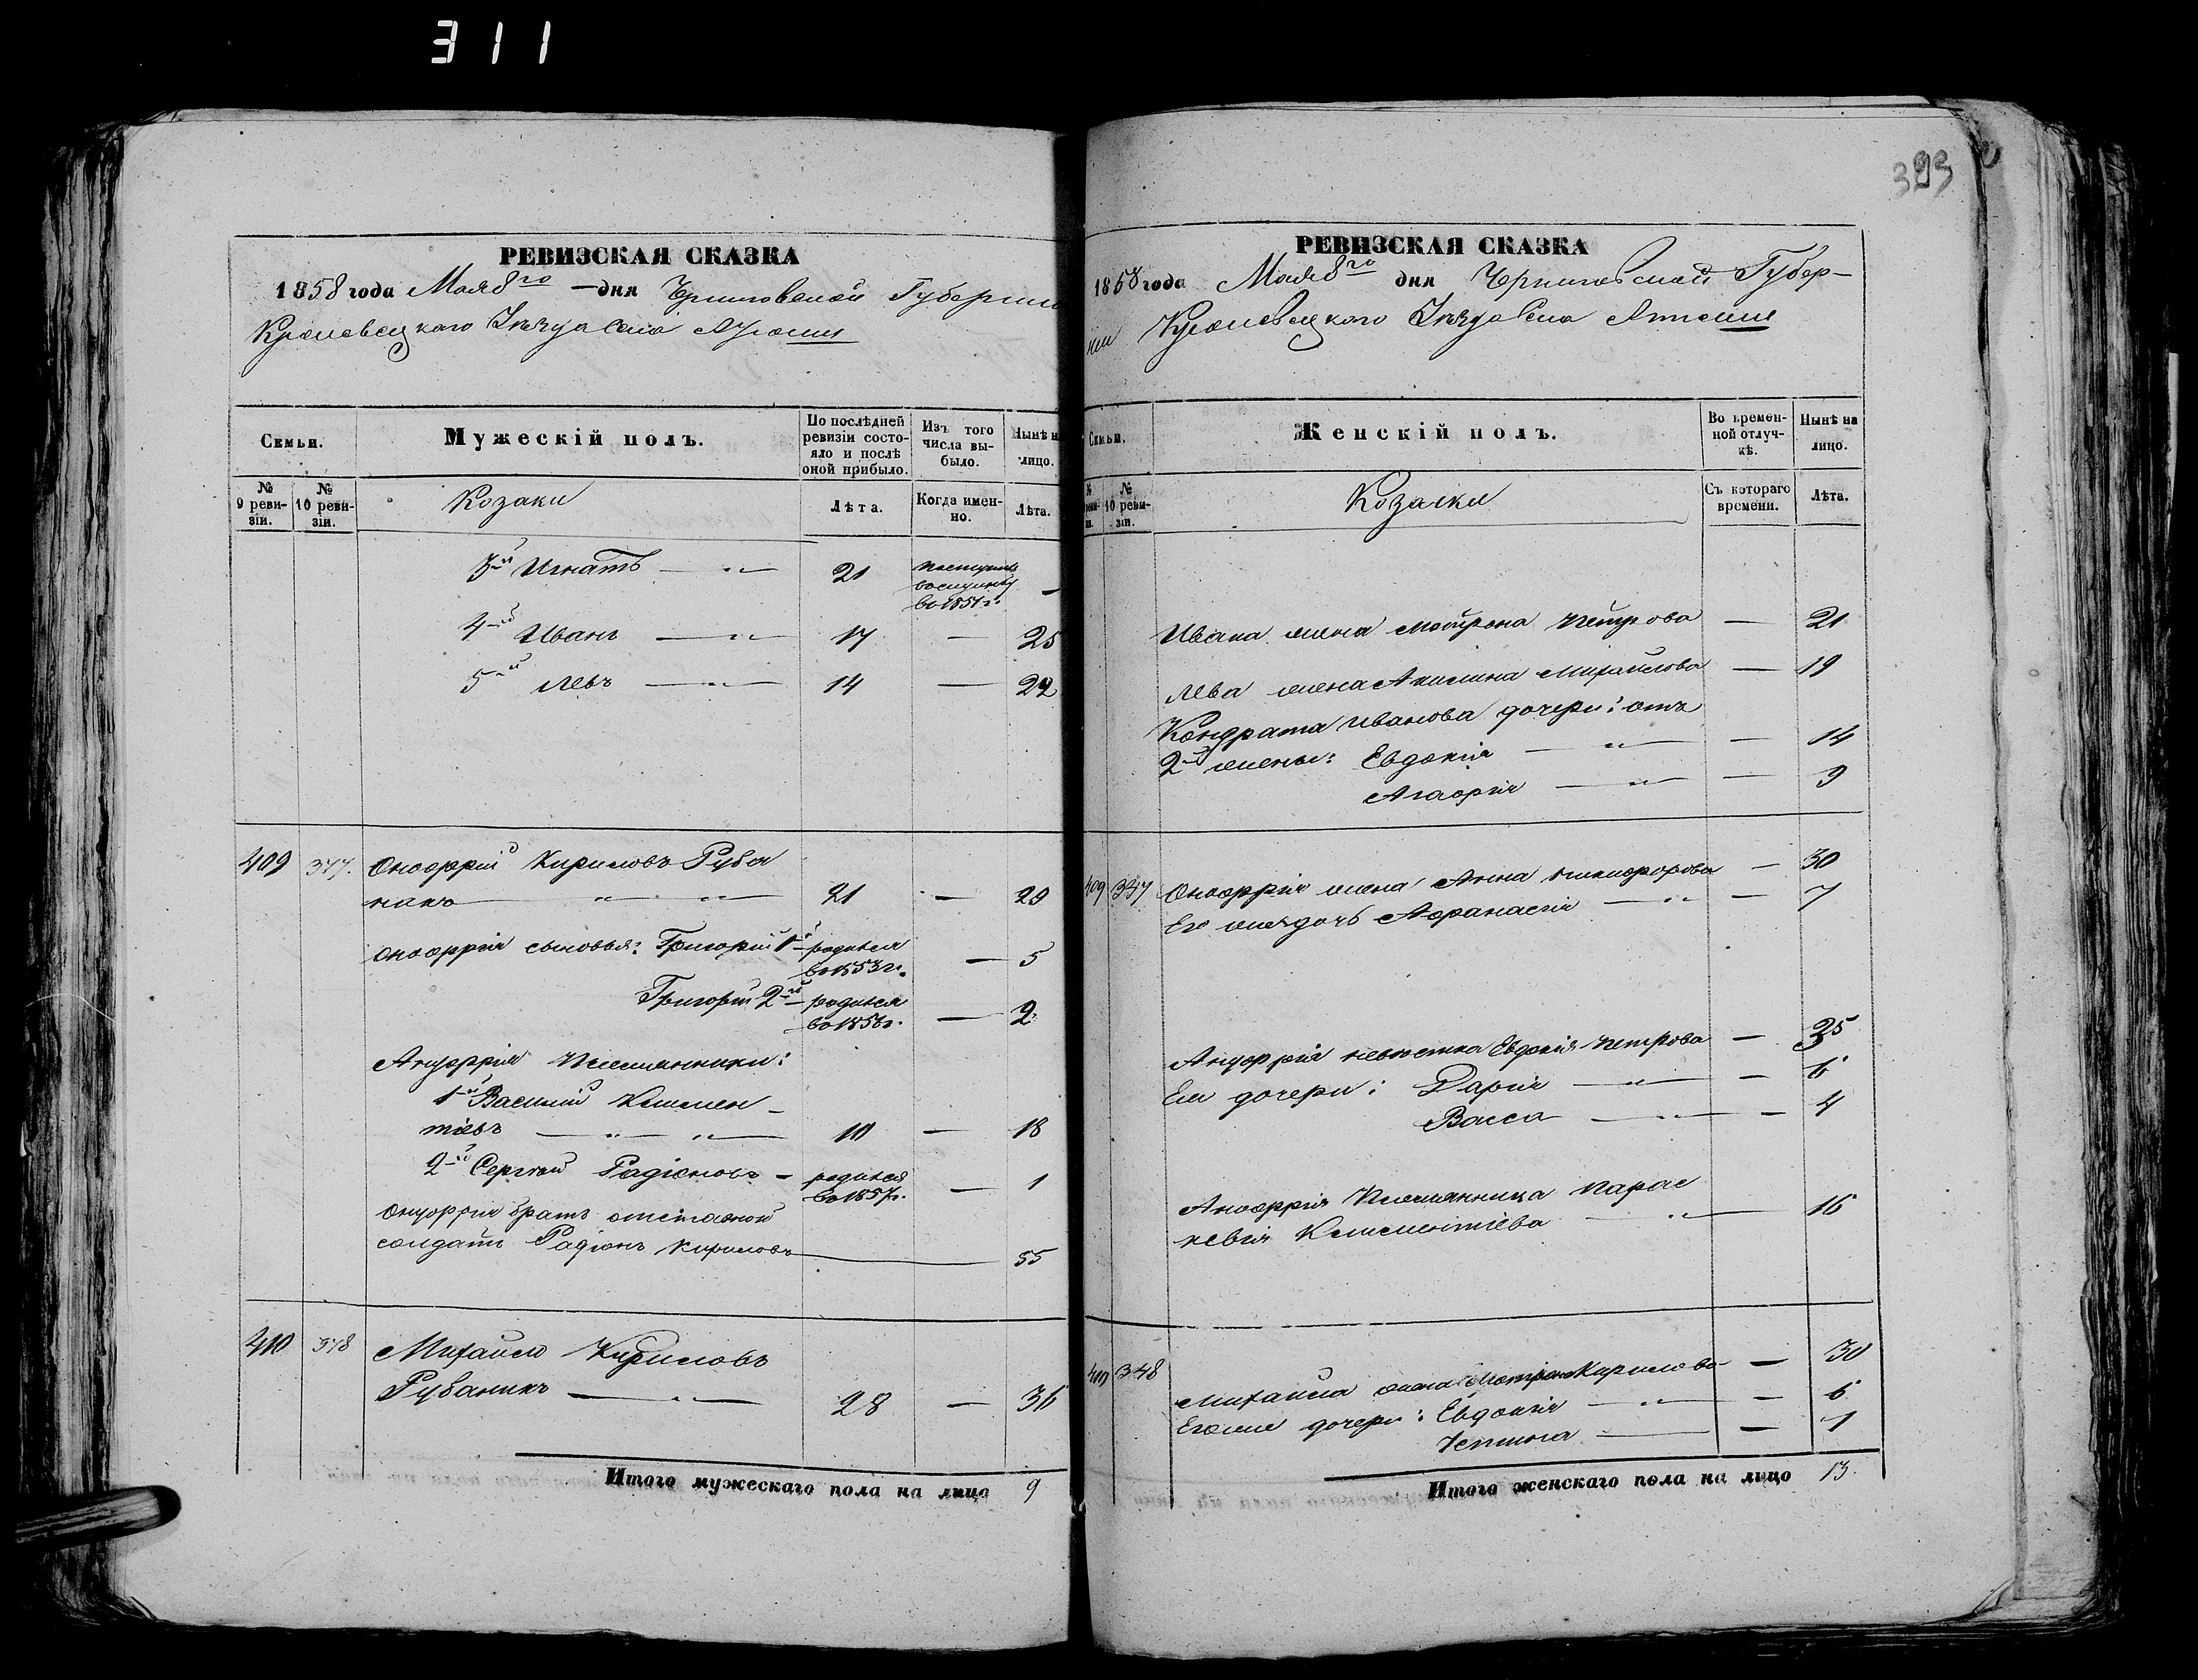 311
393
РЕВИЗСКАЯ СКАЗКА
1858 года Мая 8го дня Черниговской Губернии
Кролевецкаго Уѣзда Села
Семьи.
Мужескій полъ.
По послѣдней ревизіи состояло и послѣ оной прибыло.
Изъ того числа выбыло.
Нынѣ н лицо.
№ 9 ревизіи.
№ 10 ревизіи.
Козаки
Лѣта.
Когда именно.
Лѣта.
3й Игнатъ — " — 21 поступилъ
во 1851 г. —
4й Иванъ — " — 17 — 25
5й Левъ — " — 14 — 22
409 347. Оноѳрій Кириловъ Руба
никъ — " — " — 21 — 29
Оноѳрія сыновья: Григорій 1й родился
во 1853 г. — 5
Григорій 2й родился
во 1856 г. — 2
Ануфрія племянники:
1й Василій Клемен-
тіевъ — " — " — 10 — 18
2й Сергѣй Радіоновъ — родился
во 1857 г. — 1
Онуфрія братъ отставной
солдатъ Радіонъ Кириловъ — 55
410 348 Михайло Кириловъ
Рубаникъ — " — 28 — 36
Итого мужескаго пола на лицо 9
РЕВИЗСКАЯ СКАЗКА
1858 года Мая 8го дня Черниговской Губер-
ніи Кролевецкаго Уѣзда Села
Семьи.
Женскій полъ.
Во временной отлучкѣ.
Нынѣ на лицо.
№ 10 ревизіи.
Козачки
Съ котораго времени.
Лѣта.
Ивана жена Мотрона Петрова — 21
Лева жена Акилина Михайлова — 19
Кондрата Иванова дочери: отъ
2й жены: Евдокія — " — — 14
Агафія — " — — 9
409 347 Оноѳрія жена Анна Никифорова — 30
Его же дочь Афанасія — " — — 7
Ануфрія невѣстка Евдокія Петрова — 35
Ея дочери: Дарія — " — — 6
Васса — " — — 4
Аноѳрія племянница Парас
кевія Клементіева — " — 16
410 348
Михайла жена Мотрона Кирилова — 30
Его же дочери: Евдокія — " — — 6
— — 1
Итого женскаго пола на лицо 13.